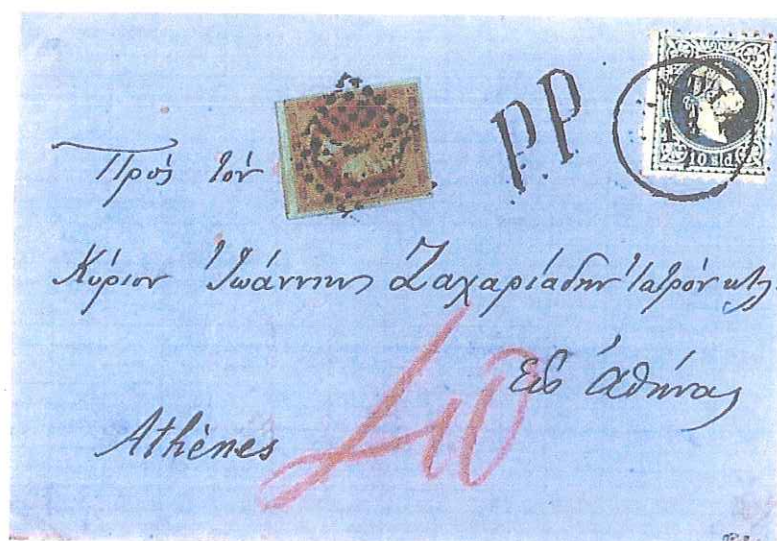 PP
10 sld
Πρὸς τὸν
Κύριον Ἰωάννην Ζαχαριάδην Ἰατρὸν κτλ.
Εἰς Ἀθήνας
Athènes
40